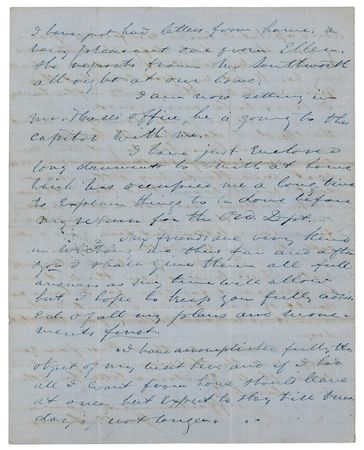 I have just had letters from home, a
very pleasant one from Ellen.
She reports from Mr Southworth
all right at our house.
I am now setting in
Mr. Halls office, he is going to the
capitol with me.
I have just Enclosed
long document to Smith at home
which has occupied me a long time
to Explain things to be done before
my return for the P.O. Dept.
My friends are very kind
in this far and after
I shall give them all full
answers as my time will allow
but I hope to keep you fully advis
Ed of all my plans and move-
ments first.
I have accomplished fully the
object of my visit here and if I had
all I want from home should leave
at once but Expect to stay till
day, if not longer.